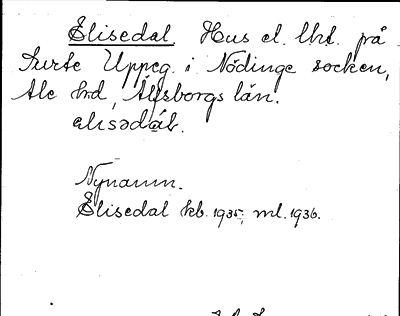 Elisedal. Hus el. lht. på
Surte Uppeg. i Nödinge socken,
Ale hd, Älvsborgs län.
Nynamn.
Elisedal kb. 1935, ml. 1936.